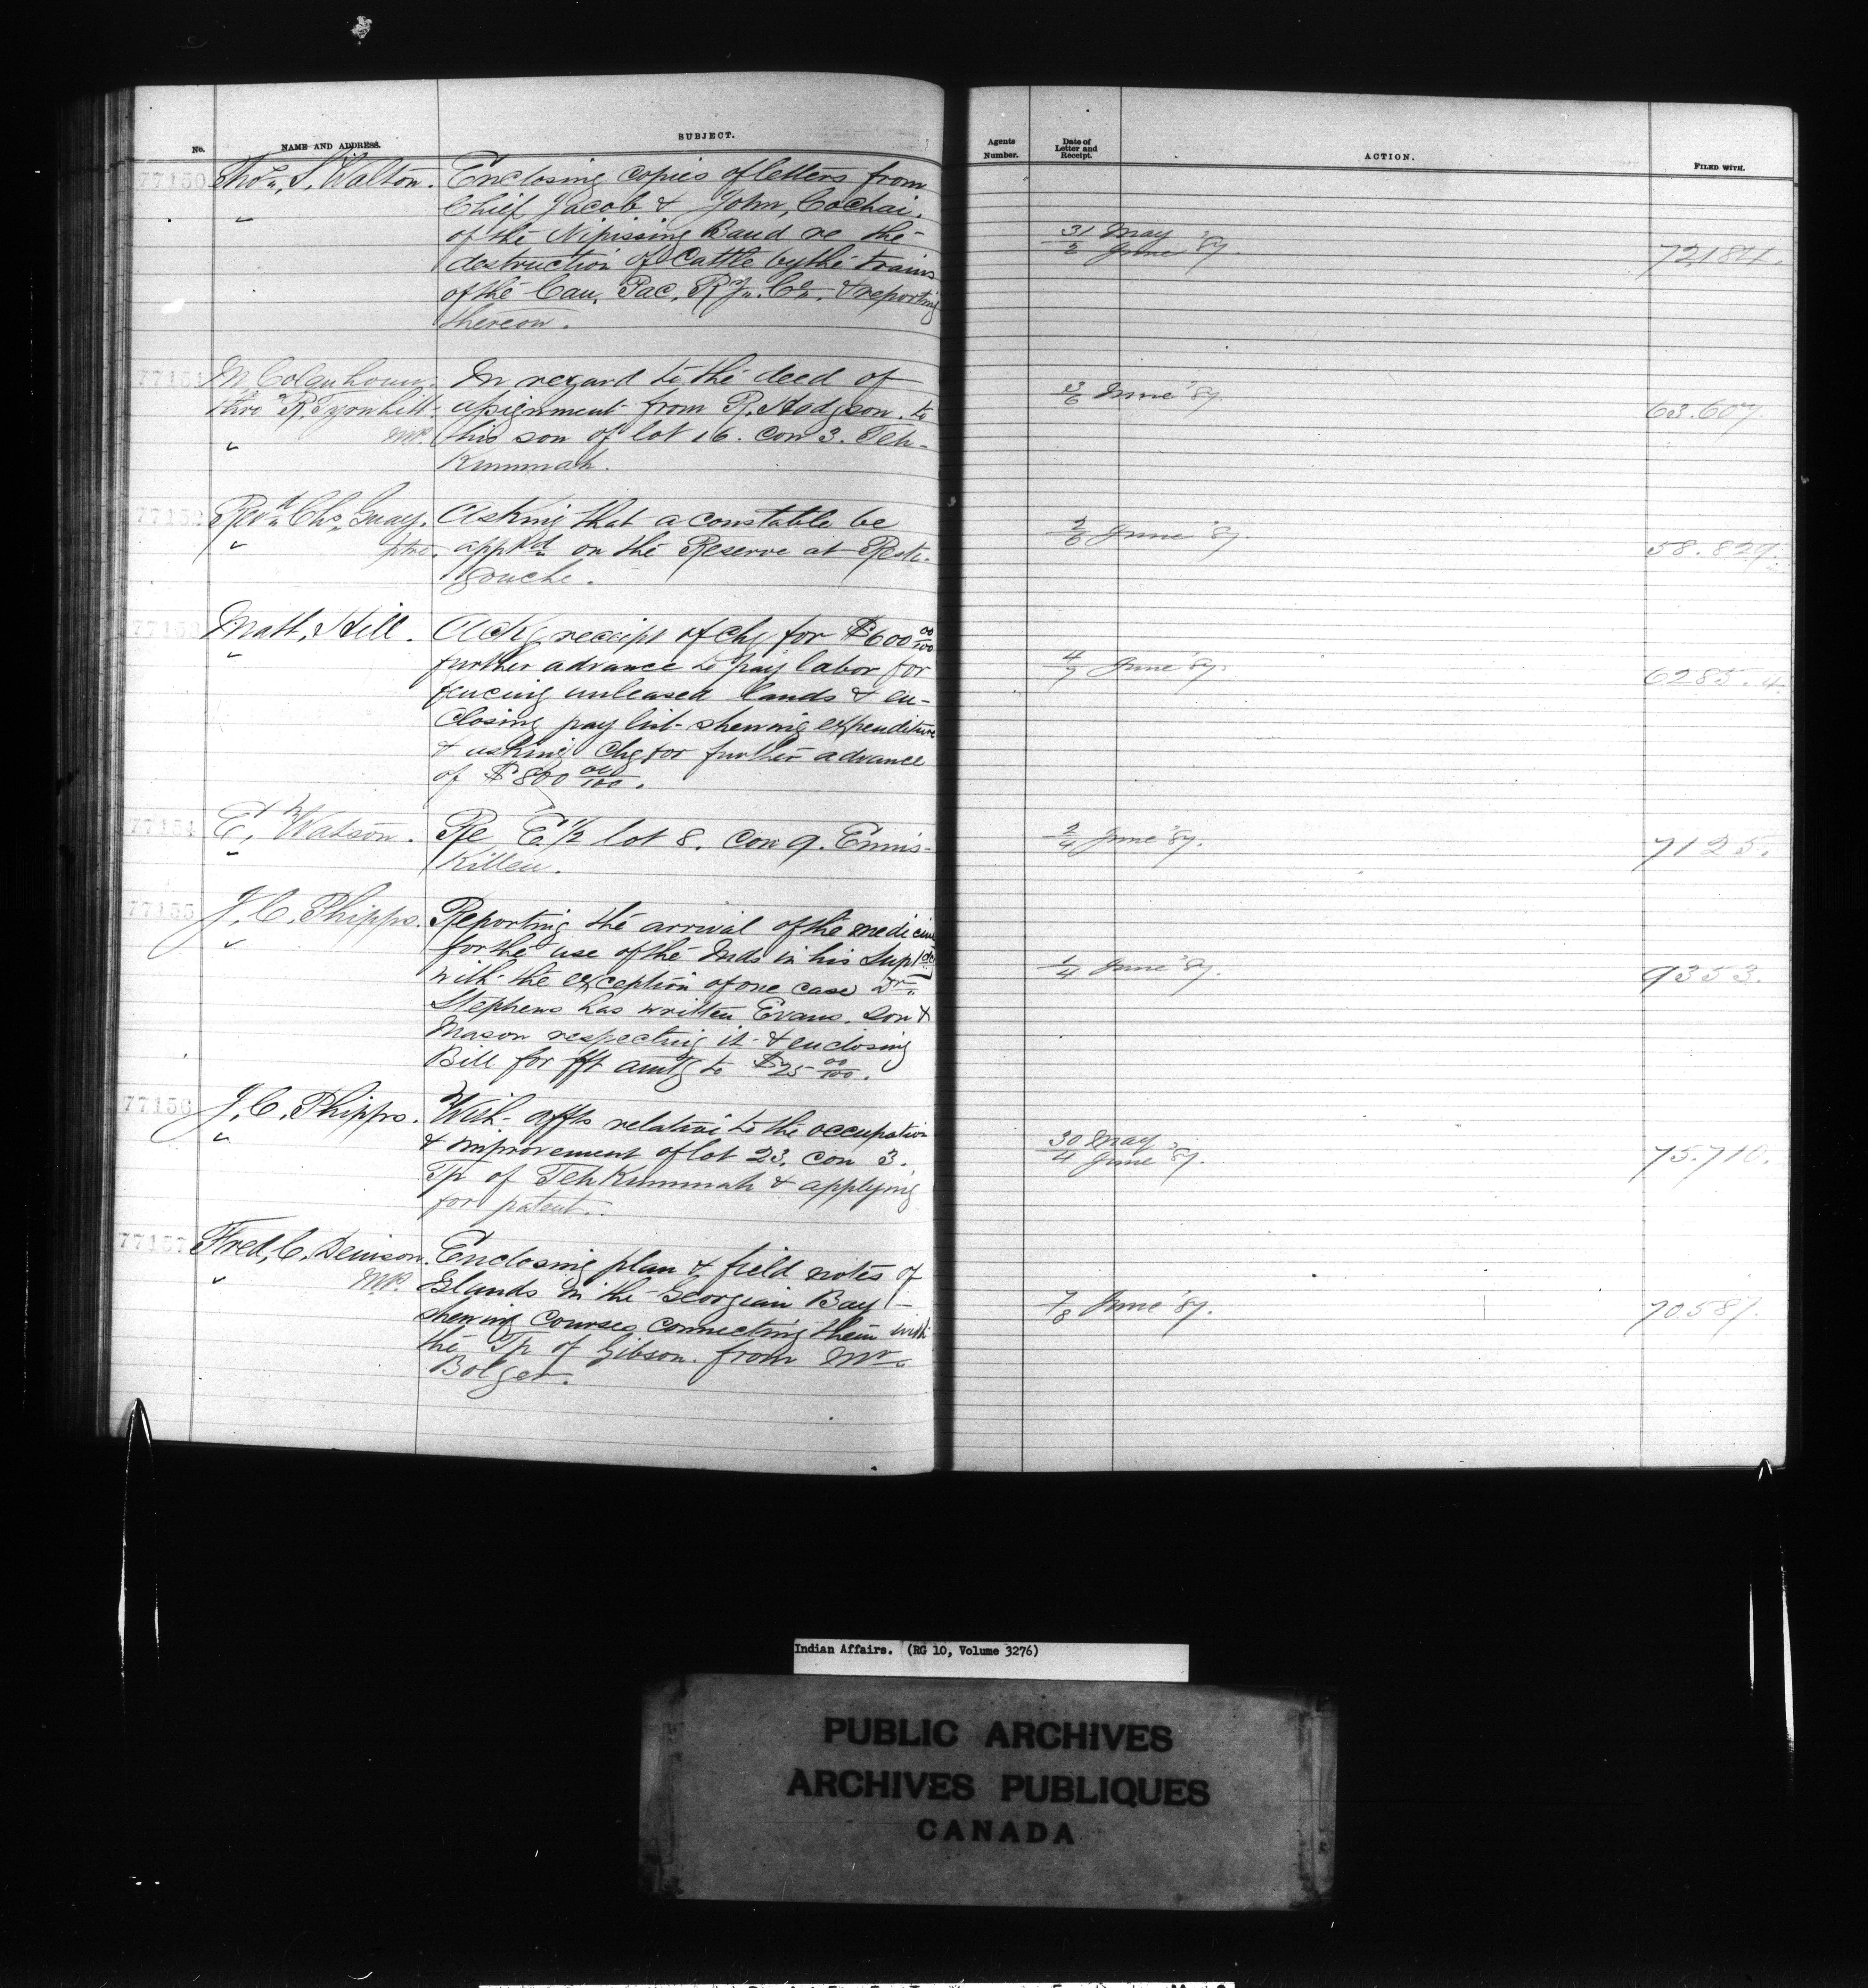 No. NAME AND ADDRESS. SUBJECT.
Agents Number. Date of Letter and Receipt. ACTION. FILED WITH.
77150 Thos. S. Walton. Enclosing copies of letters from
Chief Jacob & John, Cochai.
of the Nipissing Band re the
destruction of Cattle by the trains
of the Can. Pac. Ry. Co. & reporting
thereon.
31 May
2 June '87. 72184.
77151 M. Colquhoun. In regard to the deed of
thro R. Tyrwhitt. assignment from R. Hodgson. to
M.P. his son of lot 16. Con 3. Teh-
Kummah.
3/6 June '87. 63.607.
77152 Revd. Chs. Guay. Asking that a constable be
ptre. appd. on the Reserve at Resti-
gouche.
June '87. 58.829.
77153 Matt. Hill. Ackg receipt of chq for $600 00/100
further advance to pay labor for
fencing unleased lands & en-
closing pay list shewing expenditure
& asking Chq for further advance
of $800 00/100.
4/7 June '87. 6285.4.
77154 E. Watson. Re E 1/2 lot 8. Con 9. Ennis-
Killen.
2/4 June '87. 7125.
77155 J. C. Phipps. Reporting the arrival of the medicine
for the use of the Inds in his Suptcy
with the exception of one case Dr.
Stephens has written Evans. Son &
Mason respecting it & enclosing
Bill for fft amtg to $25 00/100.
1/4 June '87. 9353.
77156 J. C. Phipps. With affts relative to the occupation
& improvement of lot 23. Con 3.
Tp of TehKummah & applying
for patent.
30 May
4 June '87. 75.710.
77157 Fred. C. Denison. Enclosing plan & field notes of
M.P. Islands in the Georgian Bay
shewing courses connecting them with
the Tp of Gibson. from Mr.
Bolger.
7/8 June '87. 70587.
Indian Affairs. (RG 10, Volume 3276)
PUBLIC ARCHIVES
ARCHIVES PUBLIQUES
CANADA